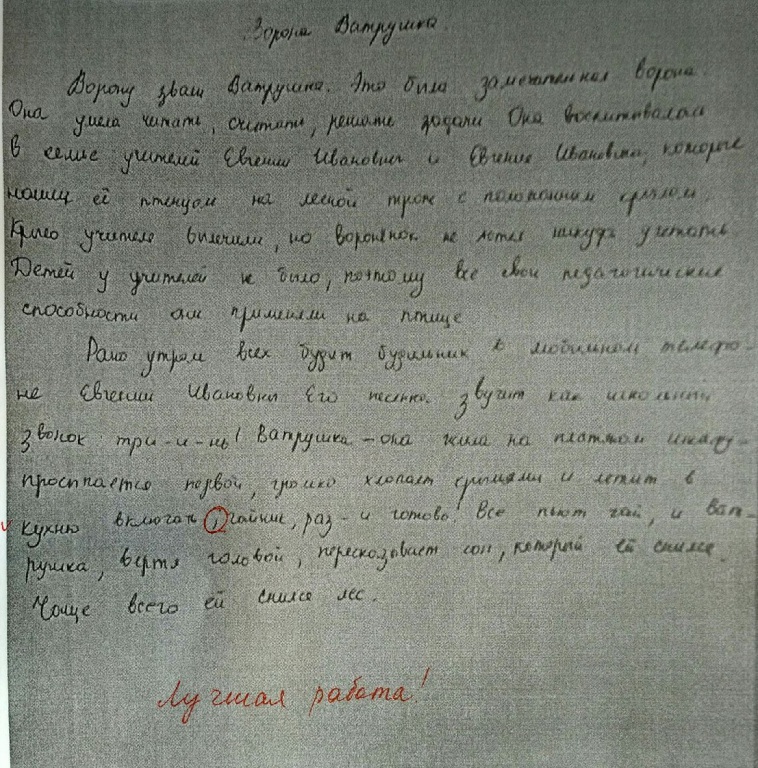 Ворона Ватрушка.
Ворону звали Ватрушка. Это была замечательная ворона.
Она умела читать, считать, решать задачи Она воспитывалась
в семье учителей Евгении Ивановны и Евгения Ивановича, которые
нашли её птенцом на лесной тропе с поломанным крылом.
Крыло учителя вылечили, но воронёнок не хотел никуда улетать.
Детей у учителей не было, поэтому все свои педагогические
способности они применяли на птице
Рано утром всех будит будильник в любимом телефо-
не Евгении Ивановны Его песенка звучит как школьный
звонок три-и-нь! Ватрушка - она жила на платяном шкафу -
просыпается первой, громко хлопает крыльями и летит в
кухню включать, чайник, раз - и готово! Все пьют чай, и Ват-
рушка, вертя головой, пересказывает сон, который ей снился.
Чаще всего ей снился лес.
Лучшая работа!